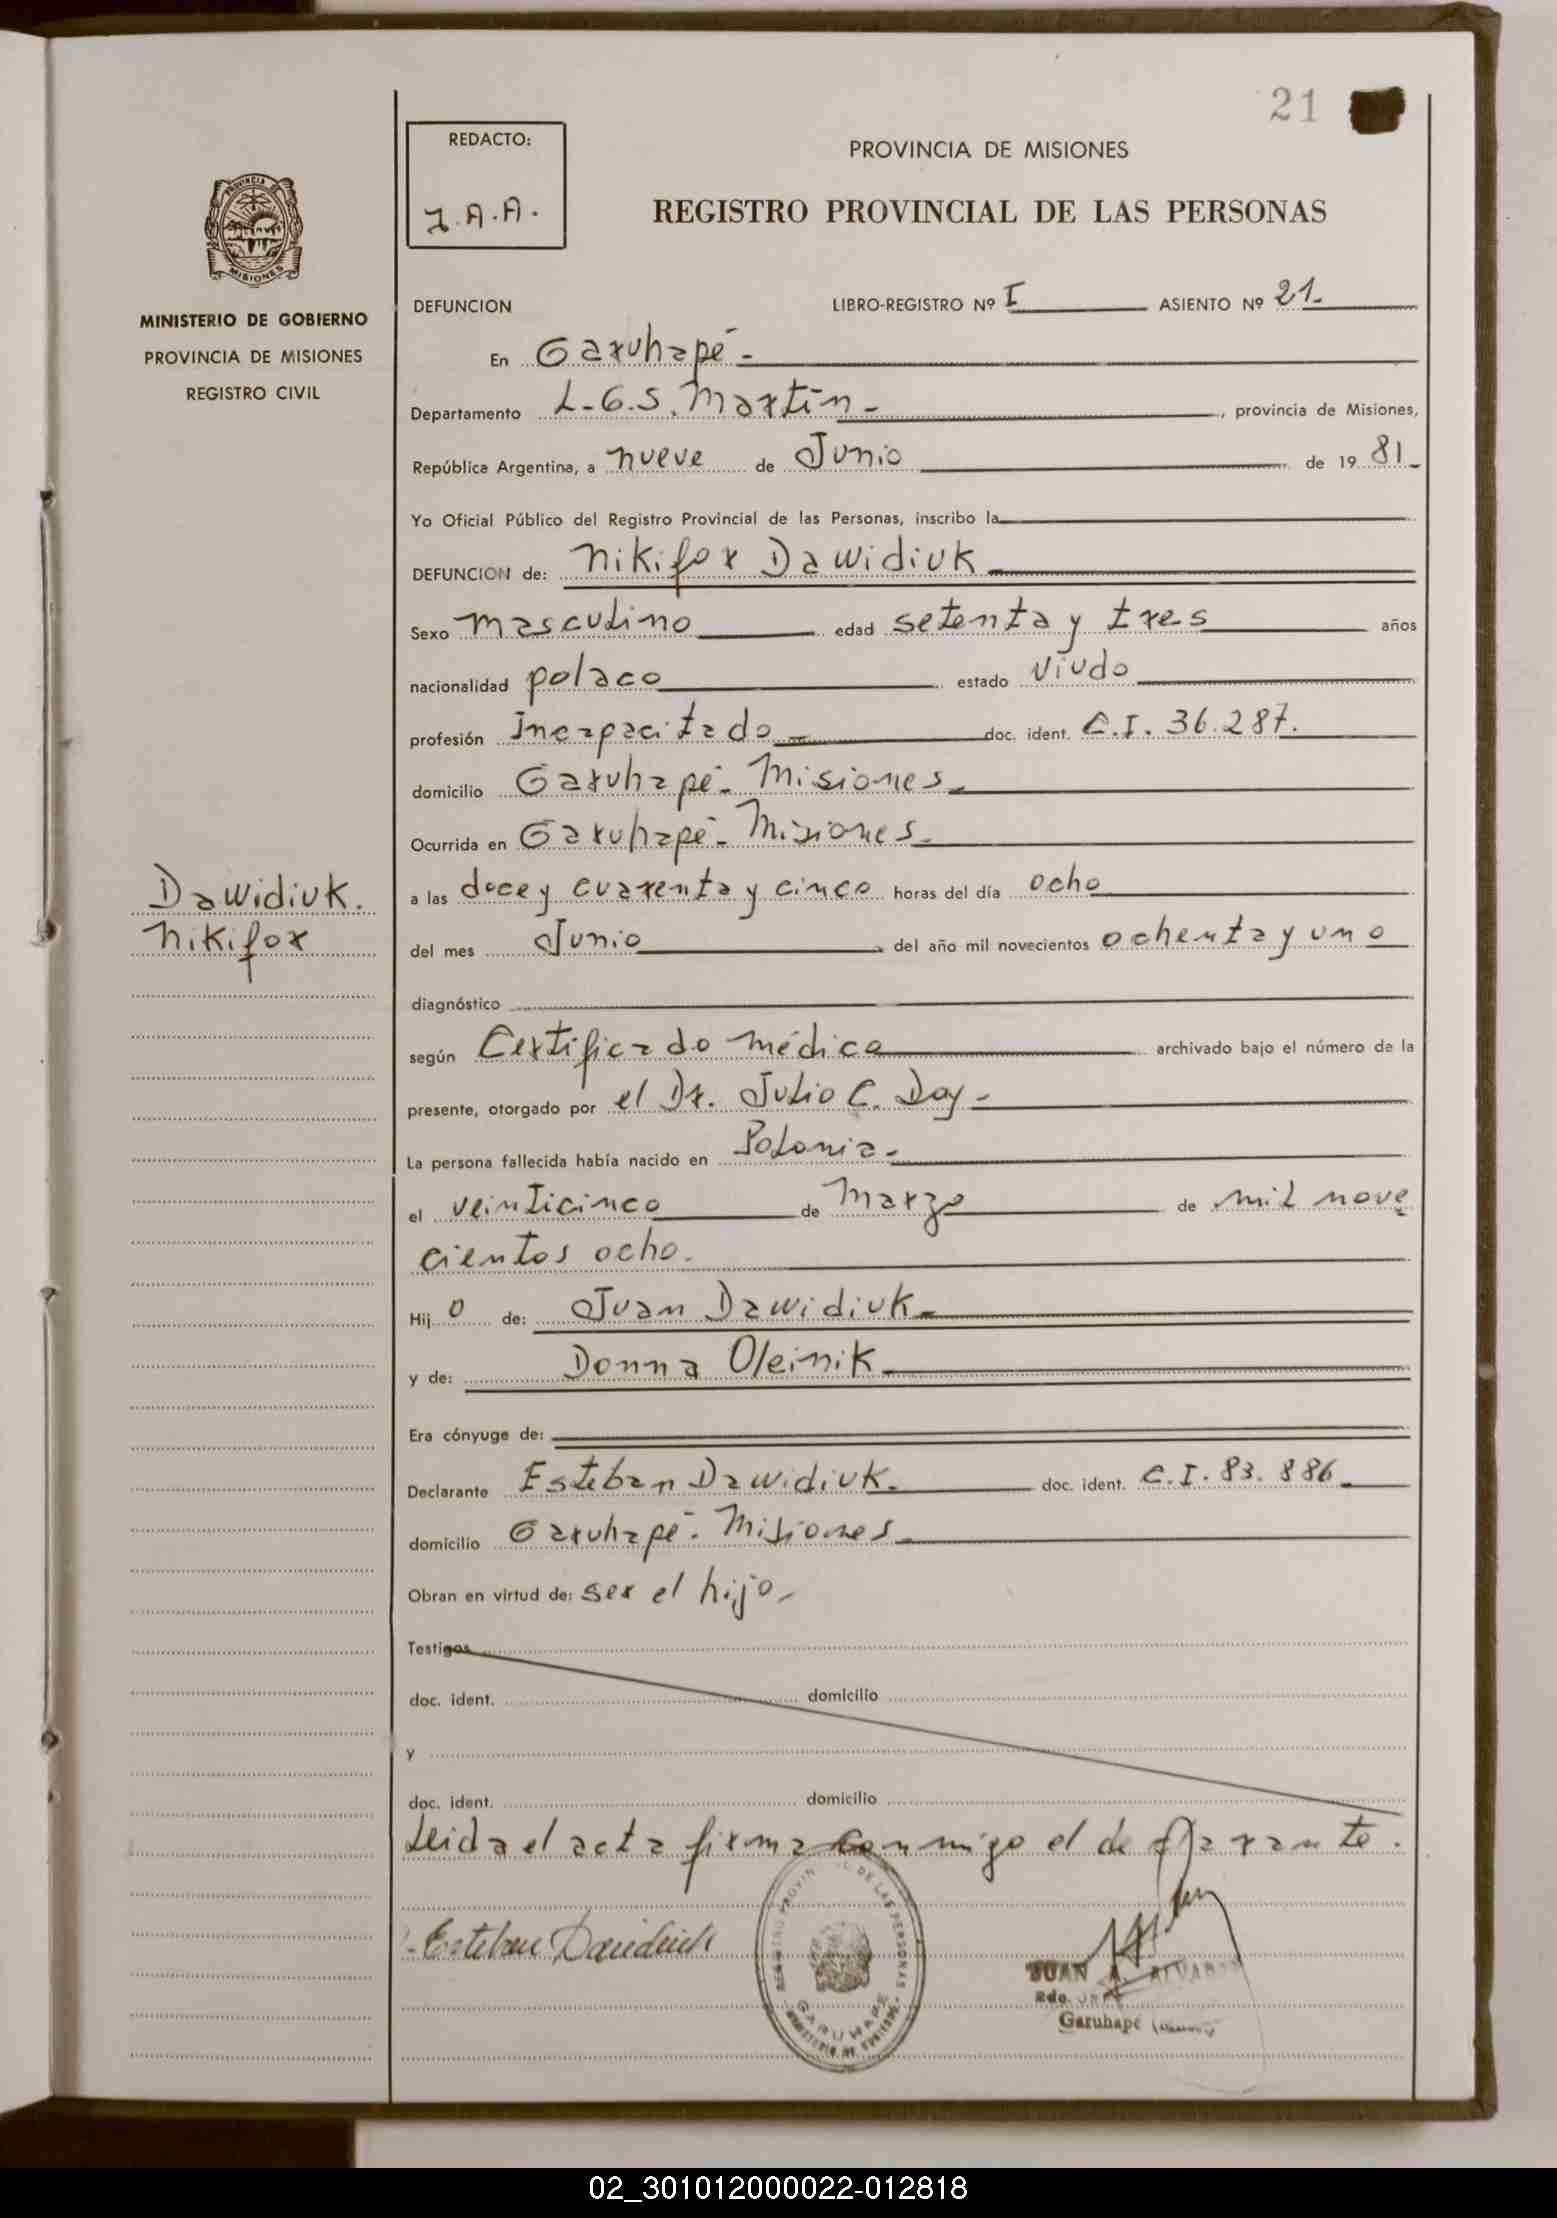 21
REDACTO:
J.A.A.
PROVINCIA DE MISIONES
REGISTRO PROVINCIAL DE LAS PERSONAS
PROVINCIA DE
MISIONES
MINISTERIO DE GOBIERNO
PROVINCIA DE MISIONES
REGISTRO CIVIL
DEFUNCION LIBRO-REGISTRO Nº I ASIENTO Nº 21.
En Garuhapé-
Departamento L.G.S. Martín-, provincia de Misiones,
República Argentina, a nueve de Junio de 1981-
Yo Oficial Público del Registro Provincial de las Personas, inscribo la
DEFUNCION de: Nikifor Dawidiuk
Sexo masculino edad setenta y tres años
nacionalidad polaco estado viudo
profesión Incapacitado doc. ident. C.I. 36.287.
domicilio Garuhapé- Misiones-
Ocurrida en Garuhapé- Misiones-
a las doce y cuarenta y cinco horas del día ocho
del mes Junio del año mil novecientos ochenta y uno
Dawidiuk.
Nikifor
diagnóstico
según Certificado médico archivado bajo el número de la
presente, otorgado por el Dr. Julio C. Doy-
La persona fallecida había nacido en Polonia-
el veinticinco de Marzo de mil nove
cientos ocho.
Hijo de: Juan Dawidiuk-
y de: Donna Oleinik
Era cónyuge de:
Declarante Esteban Dawidiuk. doc. ident. C.I. 83.886
domicilio Garuhapé- Misiones-
Obran en virtud de: ser el hijo-
Testigos
doc. ident. domicilio
y
doc. ident. domicilio
Leida el acta firma conmigo el declarante.
Esteban Dawidiuk
DE LAS PERSONAS
GARUHAPE
JUAN A. ALVAREZ
Garuhapé
02_301012000022-012818